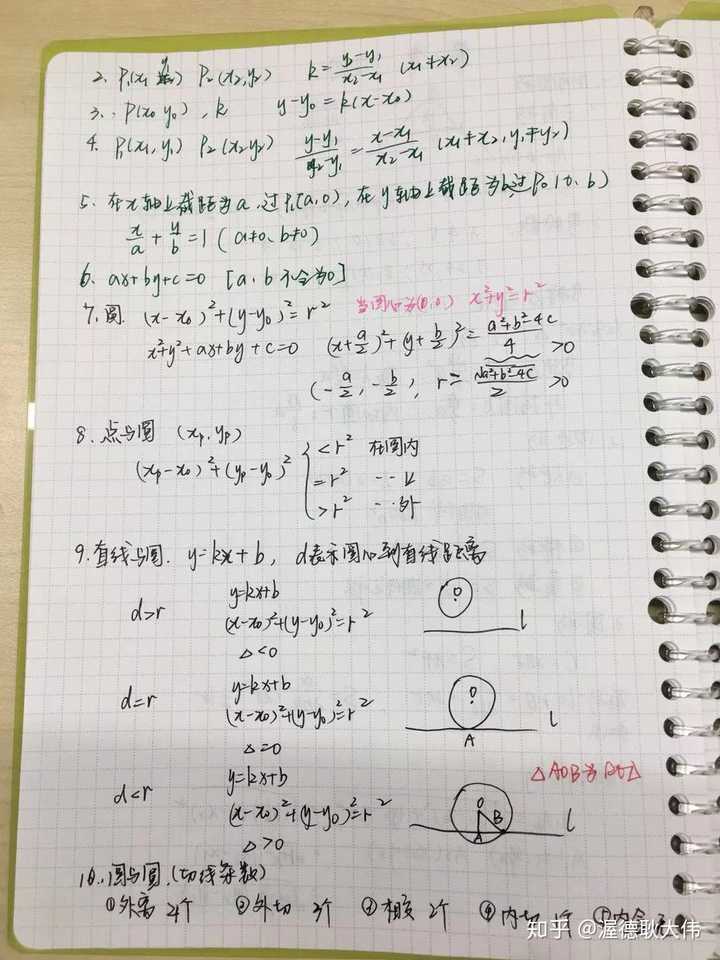 2. P₁(x₁ y₁) P₂(x₂,y₂) k=(y₂-y₁)/(x₂-x₁) (x₁≠x₂)
3. P(x₀ y₀), k y-y₀=k(x-x₀)
4. P₁(x₁,y₁) P₂(x₂y₂) (y-y₁)/(y₂-y₁)=(x-x₁)/(x₂-x₁) (x₁≠x₂,y₁≠y₂)
5. 在x轴上截距为a,过P₁(a,0),在y轴上截距为b,过P₀(0,b)
x/a+y/b=1 (a≠0、b≠0)
6. ax+by+c=0 [a、b不全为0]
7、圆. (x-x₀)²+(y-y₀)²=r² 当圆心为(0,0) x²+y²=r²
x²+y²+ax+by+c=0 (x+a/2)²+(y+b/2)²=(a²+b²-4c)/4>0
(-a/2,-b/2), r=√(a²+b²-4c)/2>0
8、点与圆 (xₚ,yₚ)
(xₚ-x₀)²+(yₚ-y₀)²
<r² 在圆内
=r² -- 上
>r² -- 外
9、直线与圆. y=kx+b, d表示圆心到直线距离
d>r y=kx+b
(x-x₀)²+(y-y₀)²=r²
△<0
O l
d=r y=kx+b
(x-x₀)²+(y-y₀)²=r²
△=0
O A l
△AOB为Rt△
d<r y=kx+b
(x-x₀)²+(y-y₀)²=r²
△>0
O B A l
10、圆与圆.(切线条数)
①外离 4个 ②外切 3个 ③相交 2个 ④内切 1个 ⑤内含
知乎 @渥德耿大伟